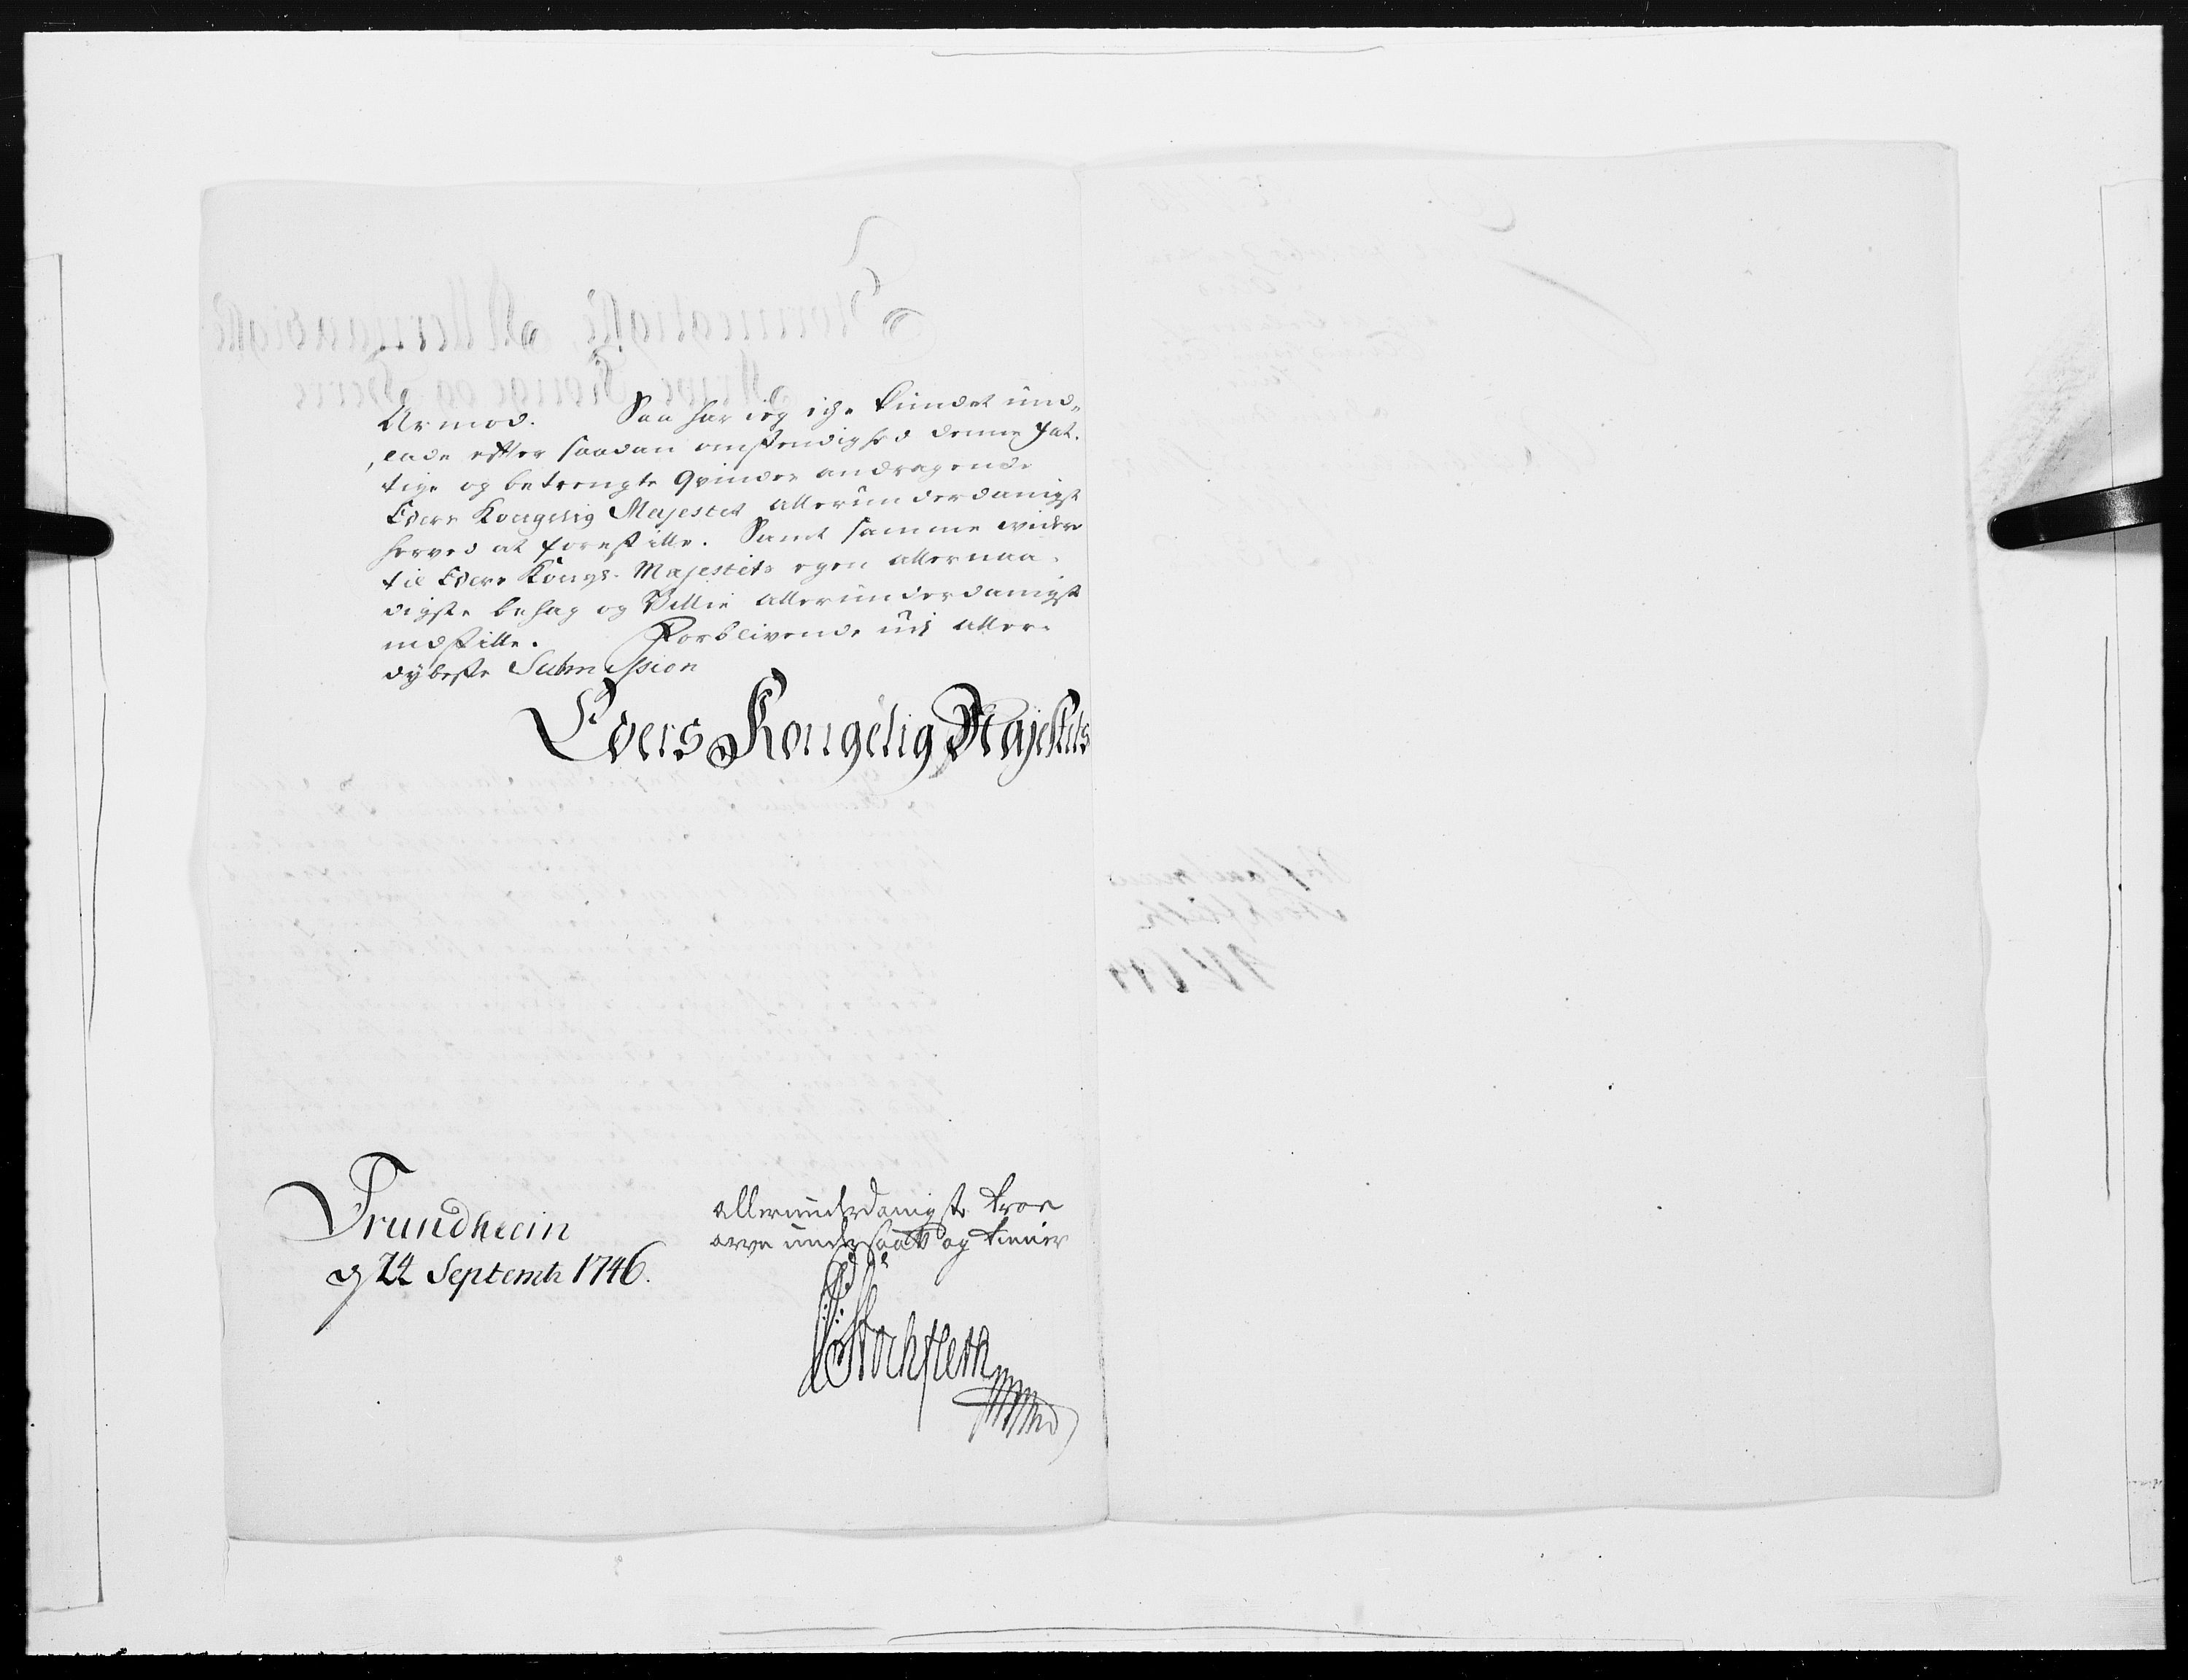 Armod. Saa har ieg iche kundet und-
lade efter saadan omstendighed denne fat-
tige og betrengte Qvindes andragende
Eders Kongelig Majestet allerunderdanigst
herved at forestille. Samt samme videre
til Eders Kongs. Majestets egen allernaa-
digste behag og Villie allerunderdanigst
indstille. Forblivende udi aller-
dybeste Submission
Eders Kongelig Majestets
Trundheim
d 24 Septembr 1746.
allerunderdanigste troe
arve undersaat og tiener
Stockfleth